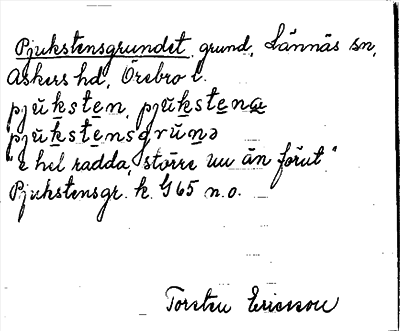 Pjukstensgrundet, grund, Lännäs sn,
Askers hd, Örebro l.
pjŭksten, pjŭkstenæ
pjŭkstensgrŭnə
"e hel radda, större nu än förut."
Pjukstensgr. k. G65 n.o.
Torsten Ericsson